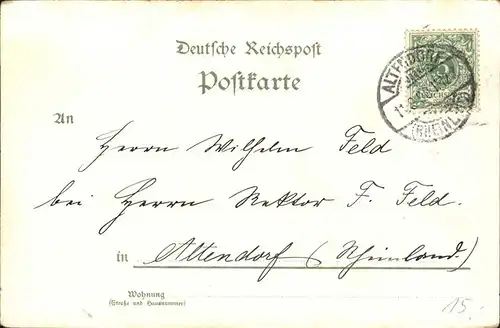 Deutsche Reichspost
Postkarte
ALTENDORF
(RHEINL
11
An
Herrn Wilhelm Feld
bei Herrn Rektor F. Feld.
in Altendorf (Rheinland.)
Wohnung
(Straße und Hausnummer)
15.-